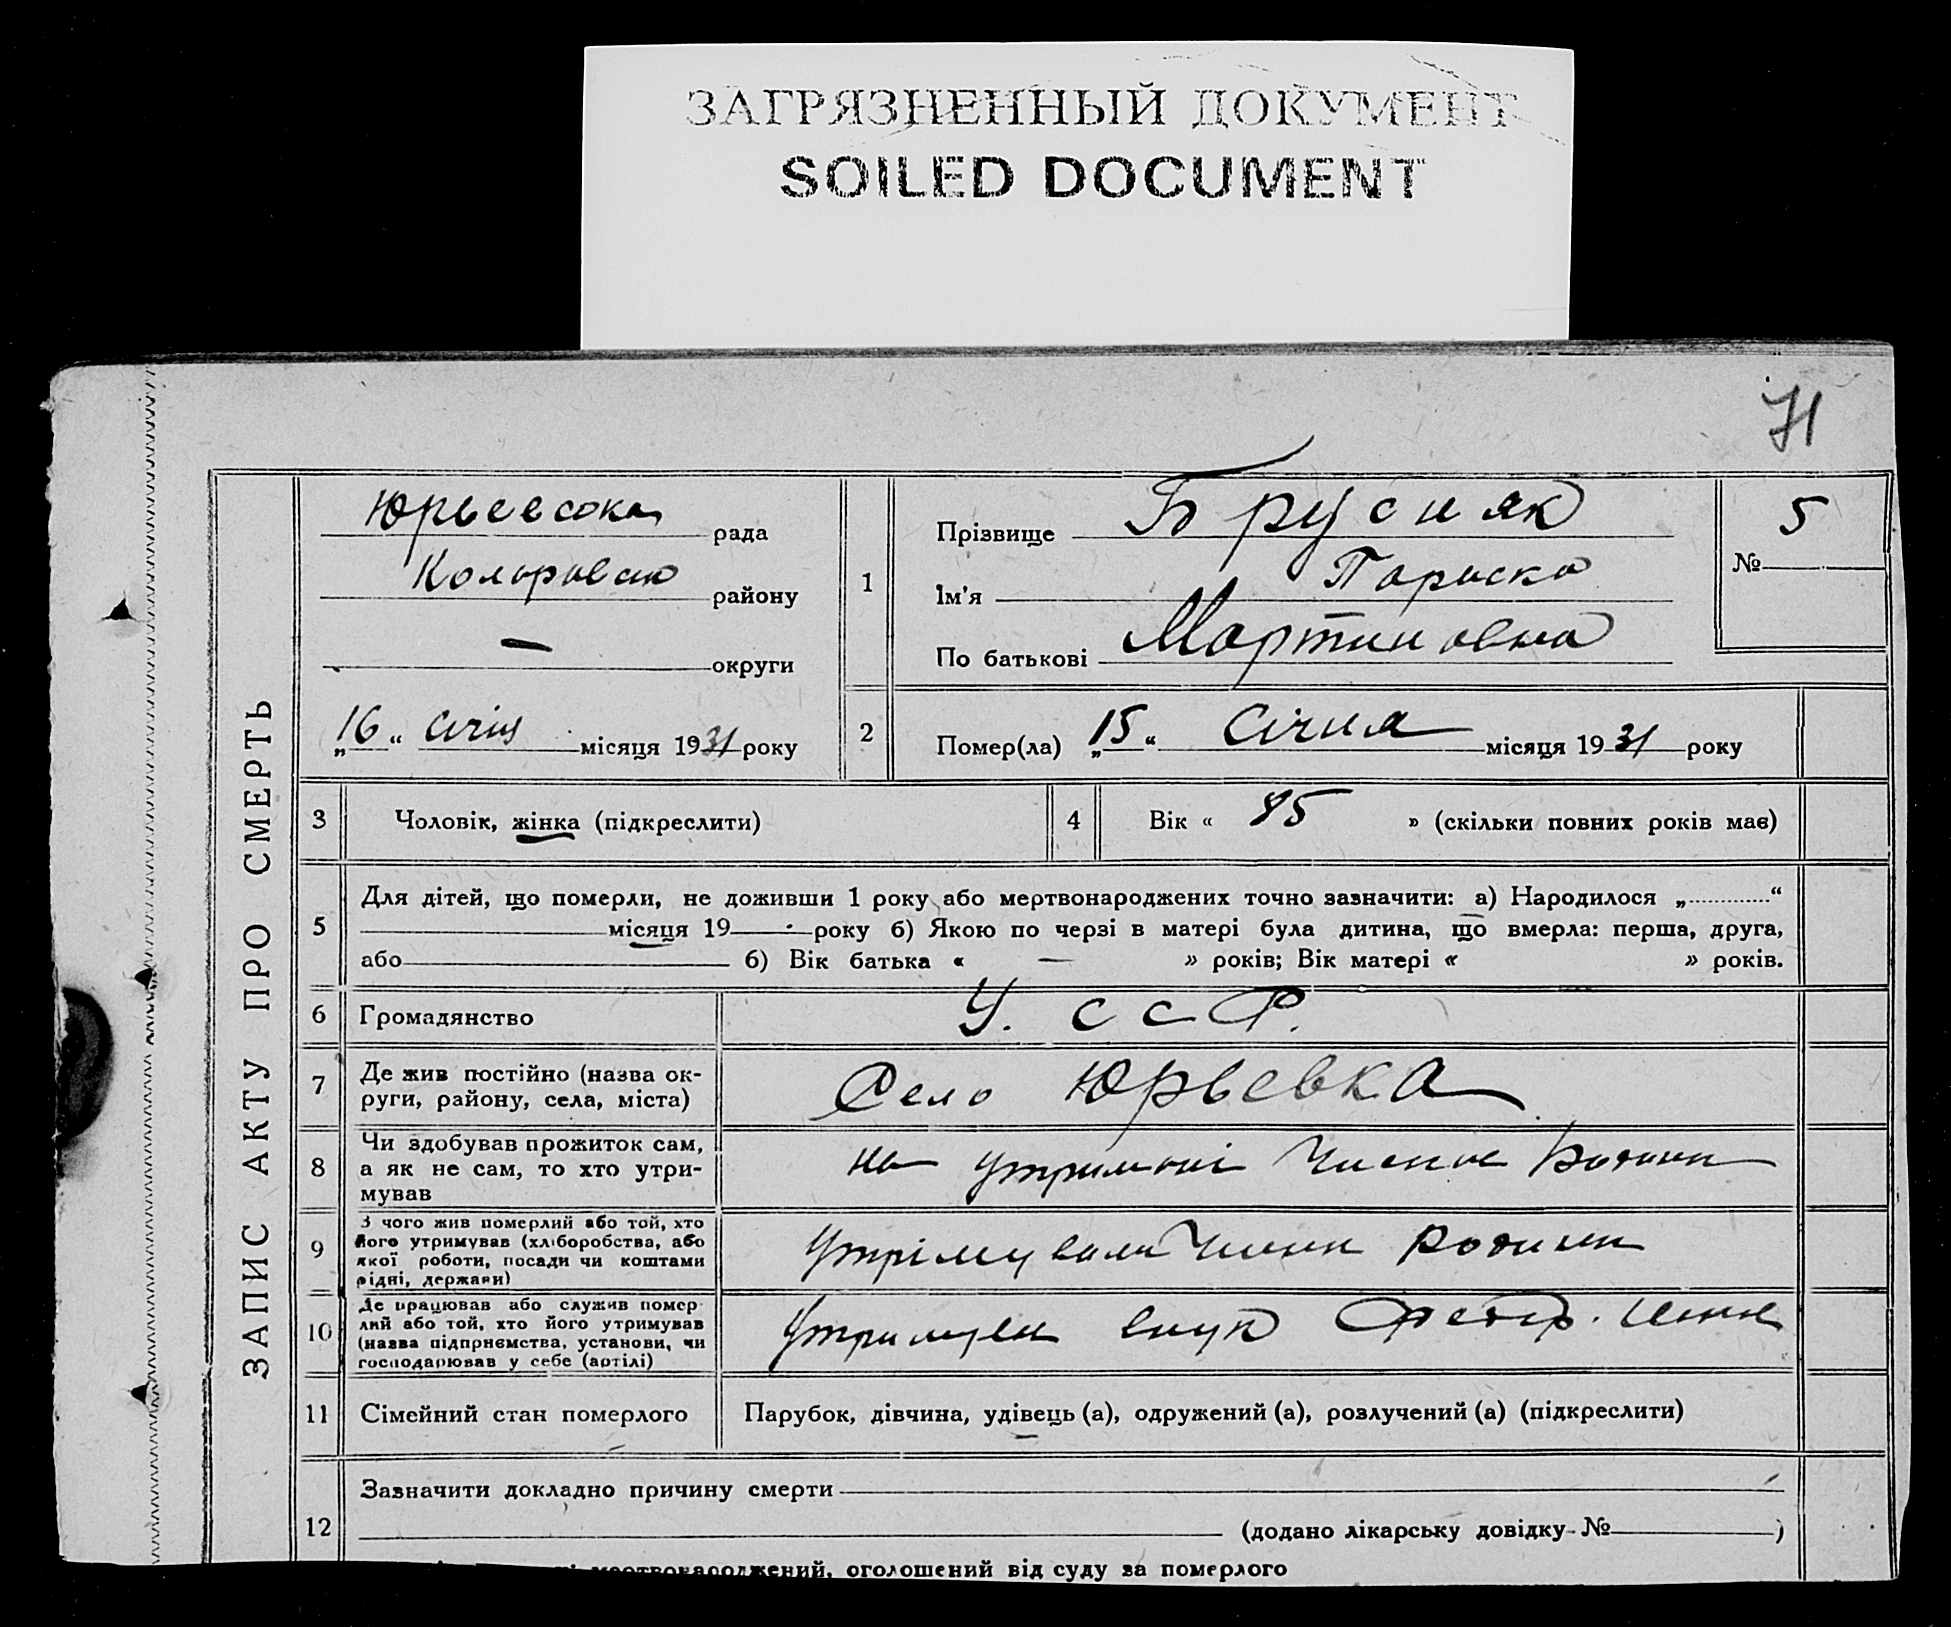 ЗАГРЯЗНЕННЫЙ ДОКУМЕНТ
SOILED DOCUMENT
71
ЗАПИС АКТУ ПРО СМЕРТЬ
Юрьевсока рада
району
— округи
„16“ січня місяця 1931 року
1
Прізвище Брусняк
Ім'я Параска
По батькові Мартиновна
№ 5
2
Помер(ла) „15“ Січня місяця 1931 року
3 Чоловік, жінка (підкреслити)
4 Вік « 85 » (скільки повних років має)
5
Для дітей, що померли, не доживши 1 року або мертвонароджених точно зазначити: а) Народилося „ “
місяця 19 року б) Якою по черзі в матері була дитина, що вмерла: перша, друга,
або б) Вік батька « — » років; Вік матері « » років.
6 Громадянство У. ССР.
7
Де жив постійно (назва ок-
руги, району, села, міста)
Село Юрьевка
8
Чи здобував прожиток сам,
а як не сам, то хто утри-
мував
на утримані Членов Родини
9
З чого жив померлий або той, хто
його утримував (хліборобства, або
якої роботи, посади чи коштами
рідні, держави)
Утрімували Члени Родини
10
Де працював або служив помер-
лий або той, хто його утримував
(назва підприємства, установи, чи
господарював у себе (артілі)
внук
11 Сімейний стан померлого Парубок, дівчина, удівець (а), одружений (а), розлучений (а) (підкреслити)
12
Зазначити докладно причину смерти
(додано лікарську довідку №)
мертвонароджений, оголошений від суду за померлого